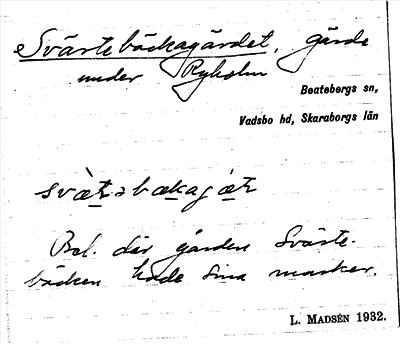 Svärtebäckagärdet, gärde
under Ryholm
Beatebergs sn,
Vadsbo hd, Skaraborgs län
där gården Svärte-
bäcken hade sina marker.
L. MADSÉN 1932.